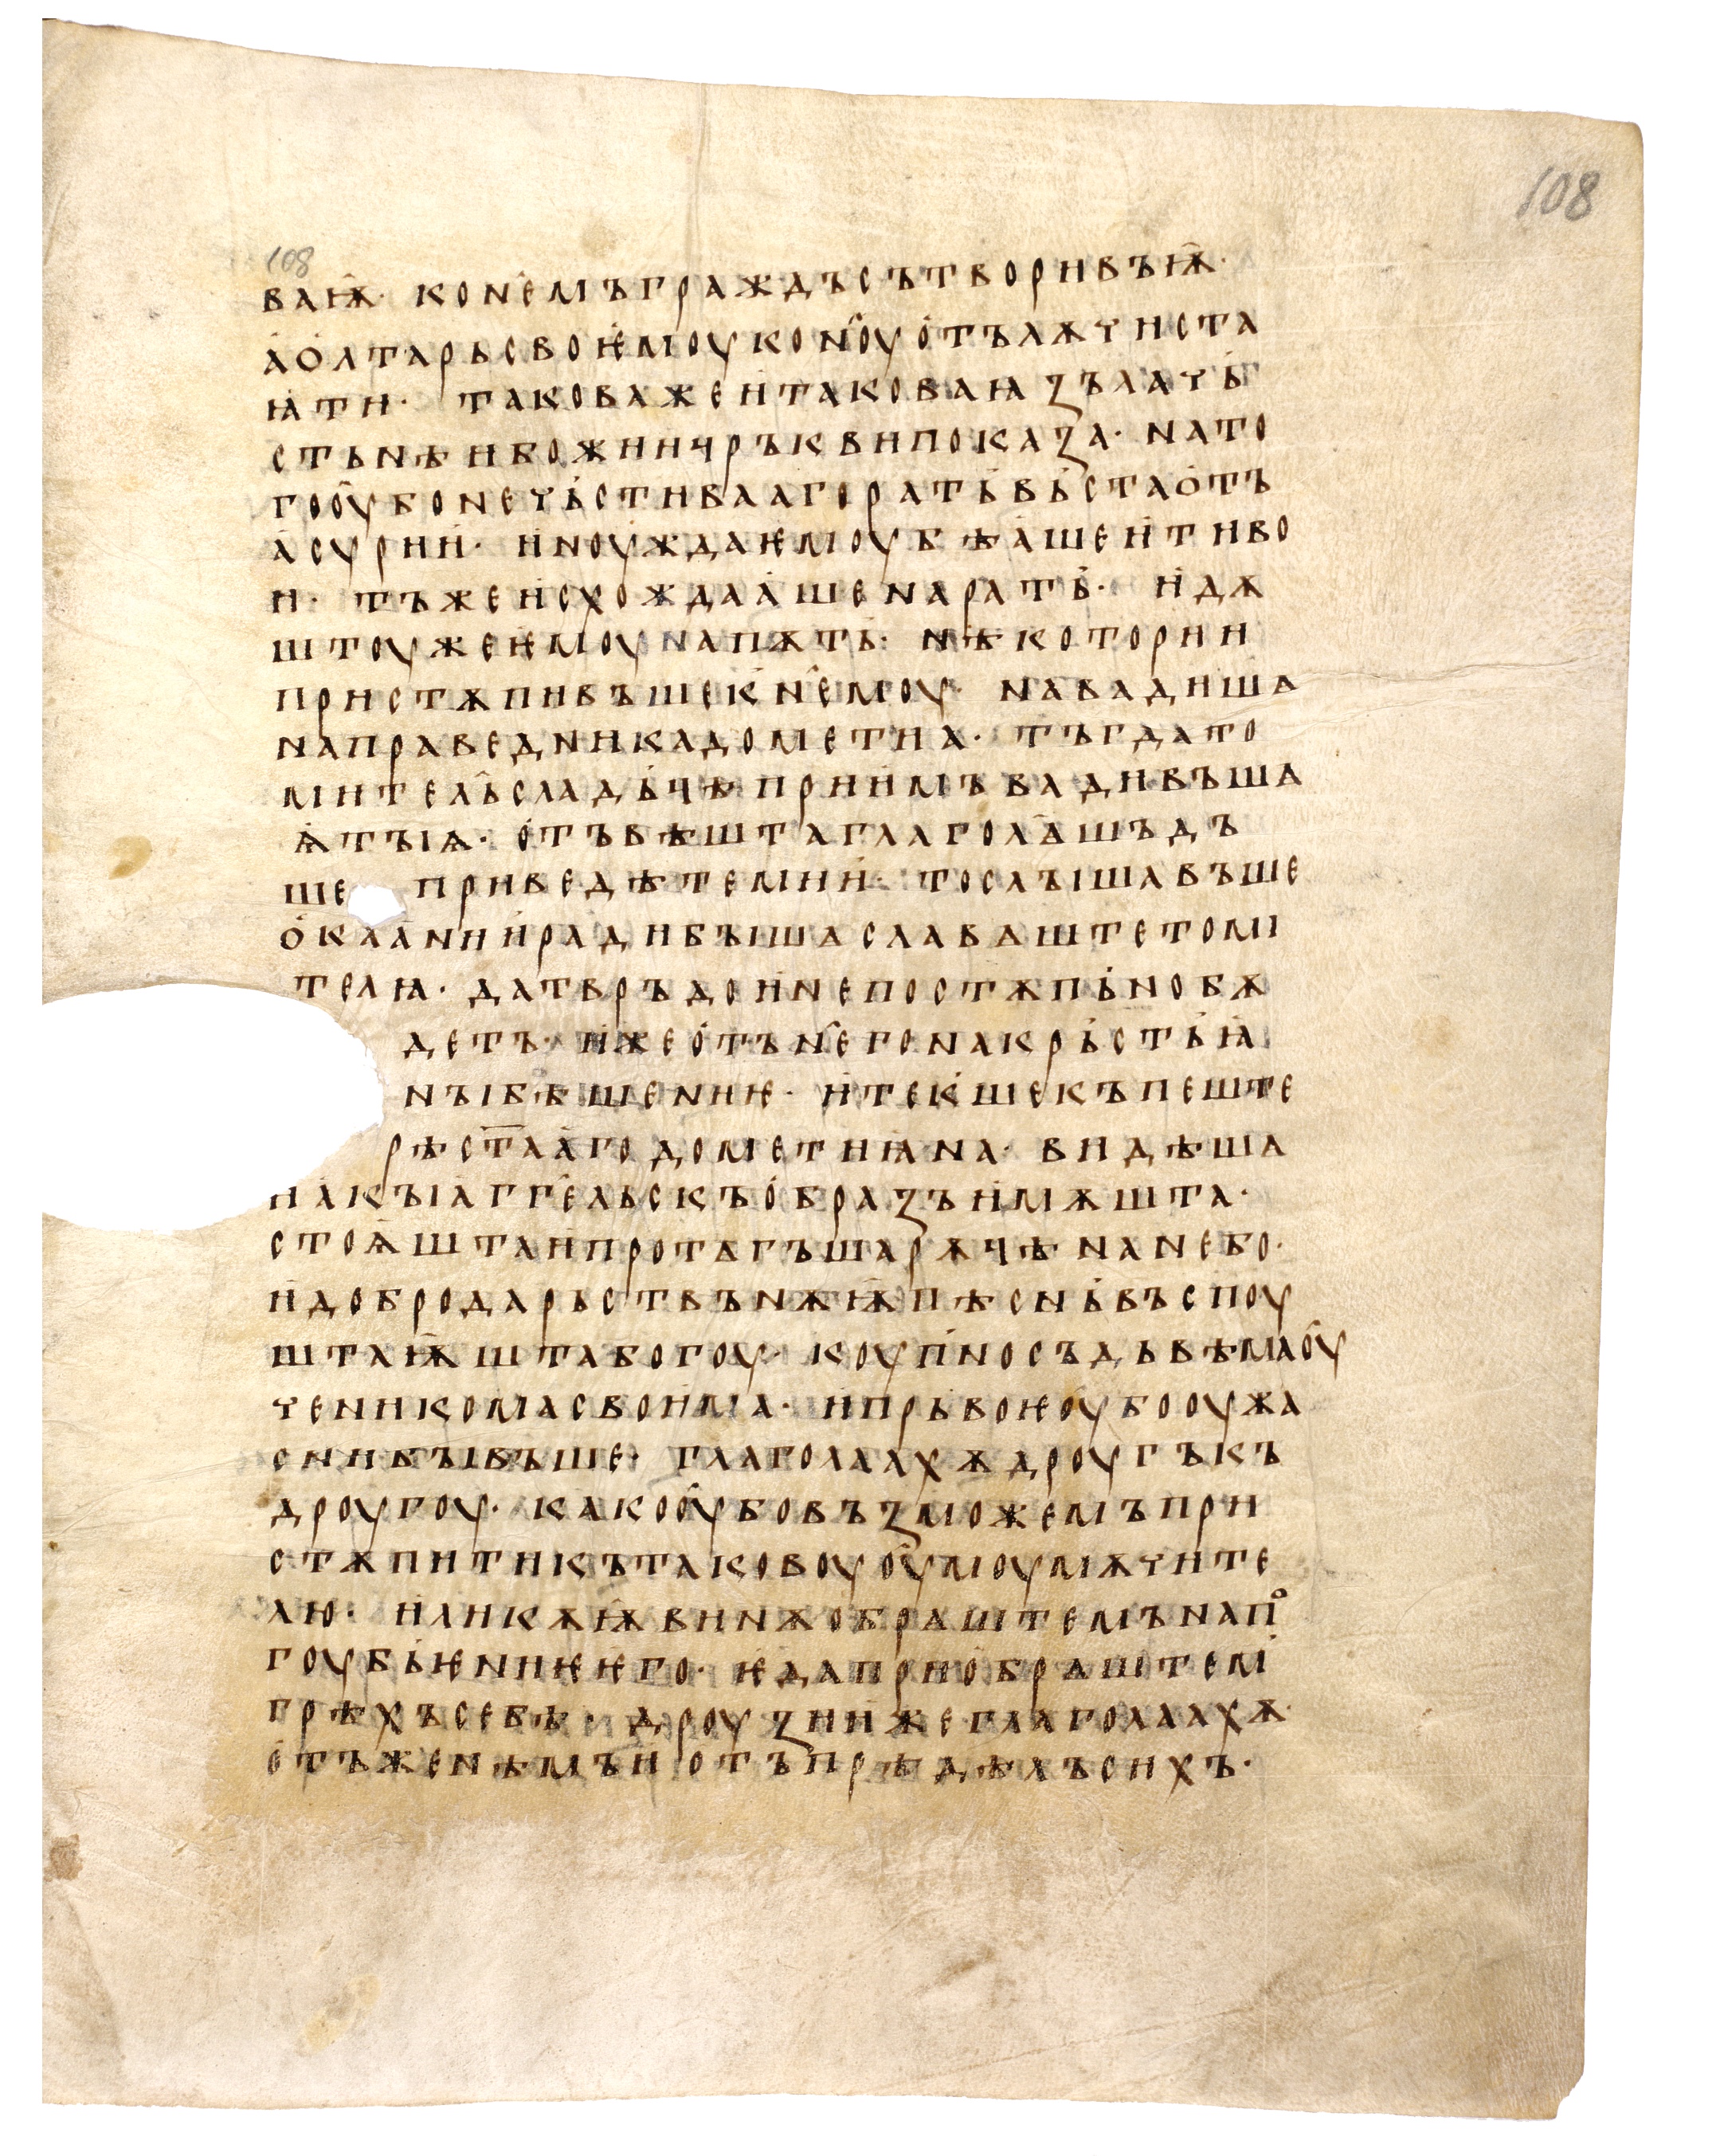 108
108
ваѭ҄· кон҄емъ граждь сътворивъ ѭ҄·
а олтарь своѥмоу кон҄оу отъ лѫчиста
ꙗти· такова же и такаваꙗ ꙁъла чь
стьнѣи божии црькви покаꙁа· на то
го оубо нечьстивааго рать въста отъ
асурии· иноужда ѥмоу бѣаше ити во
н· тъ же исхождааше на рать· идѫ
штоу же ѥмоу на пѫть· нѣкотории
пристѫпивъше к н҄емоу· навадиша
на праведника дометиа· тъгда то
мител҄ь сладъцѣ приимъ вадивъша
ѩ тыѩ· отъвѣшта глагол҄ѧ шъдъ
ше приведѣте ми и· то слышавъше
окаании ради бышѧ славѧште томи
телꙗ· да тврьдо и непостѫпьно бѫ
детъ· иже отъ н҄его на крьстьꙗ
ны бѣшениѥ· и текъше къ пеште
рѣ ст҃ааго дометиꙗна· видѣша
и акы аггел҄ьскъ обраꙁъ имѫшта·
стоѩшта и протѧгъша рѫцѣ на небо·
и добродарьствънѫѭ пѣснь въспоу
штаѭшта богоу· коупьно съ дьвѣма оу
ченикома своима· и прьвоѥ оубо оужа
сни бывъше· глаголаахѫ дроугъ къ
дроугоу· како оубо въꙁможемъ при
стѫпити къ таковоуоумоу мѫчите
лю· или кѫѭ винѫ обрѧштемъ на по
гоубьѥниѥ ѥго· ѥда приобрѧштем
грѣхъ себѣ· дроуꙁии же глаголаахѫ·
етъ же нѣмъ и отъ прѣдѣлъ сихъ·